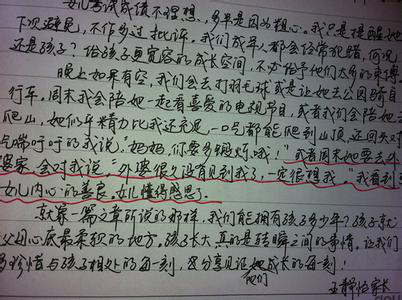 女儿考试成绩不理想,多半是因为粗心。我只是提醒她
下次避免,不作多过批评,我们成年人都会经常犯错,何况
还是孩子?给孩子更宽容的成长空间,不必给予他们太多的束缚。
晚上如果有空,我们会去打羽毛球或是让她去公园骑自
行车,周末我会陪她一起看喜爱的电视节目,或者我们会陪她去
爬山,她似乎精力比我还充足,一口气都能爬到山顶,还回头对
气喘吁吁的我说:"妈妈,你要多锻炼哦!"或者周末她要去外
婆家,会对我说:"外婆很久没有见到我了,一定很想我。"我看到
女儿内心的善良,女儿懂得感恩了。
就象一篇文章所说的那样,我们能拥有孩子多少年?孩子就
父母心底最柔软的地方。孩子长大真的是转瞬之间的事情。让我们
珍惜与孩子相处的每一刻,充分享受他们成长的每一刻!
王静怡家长